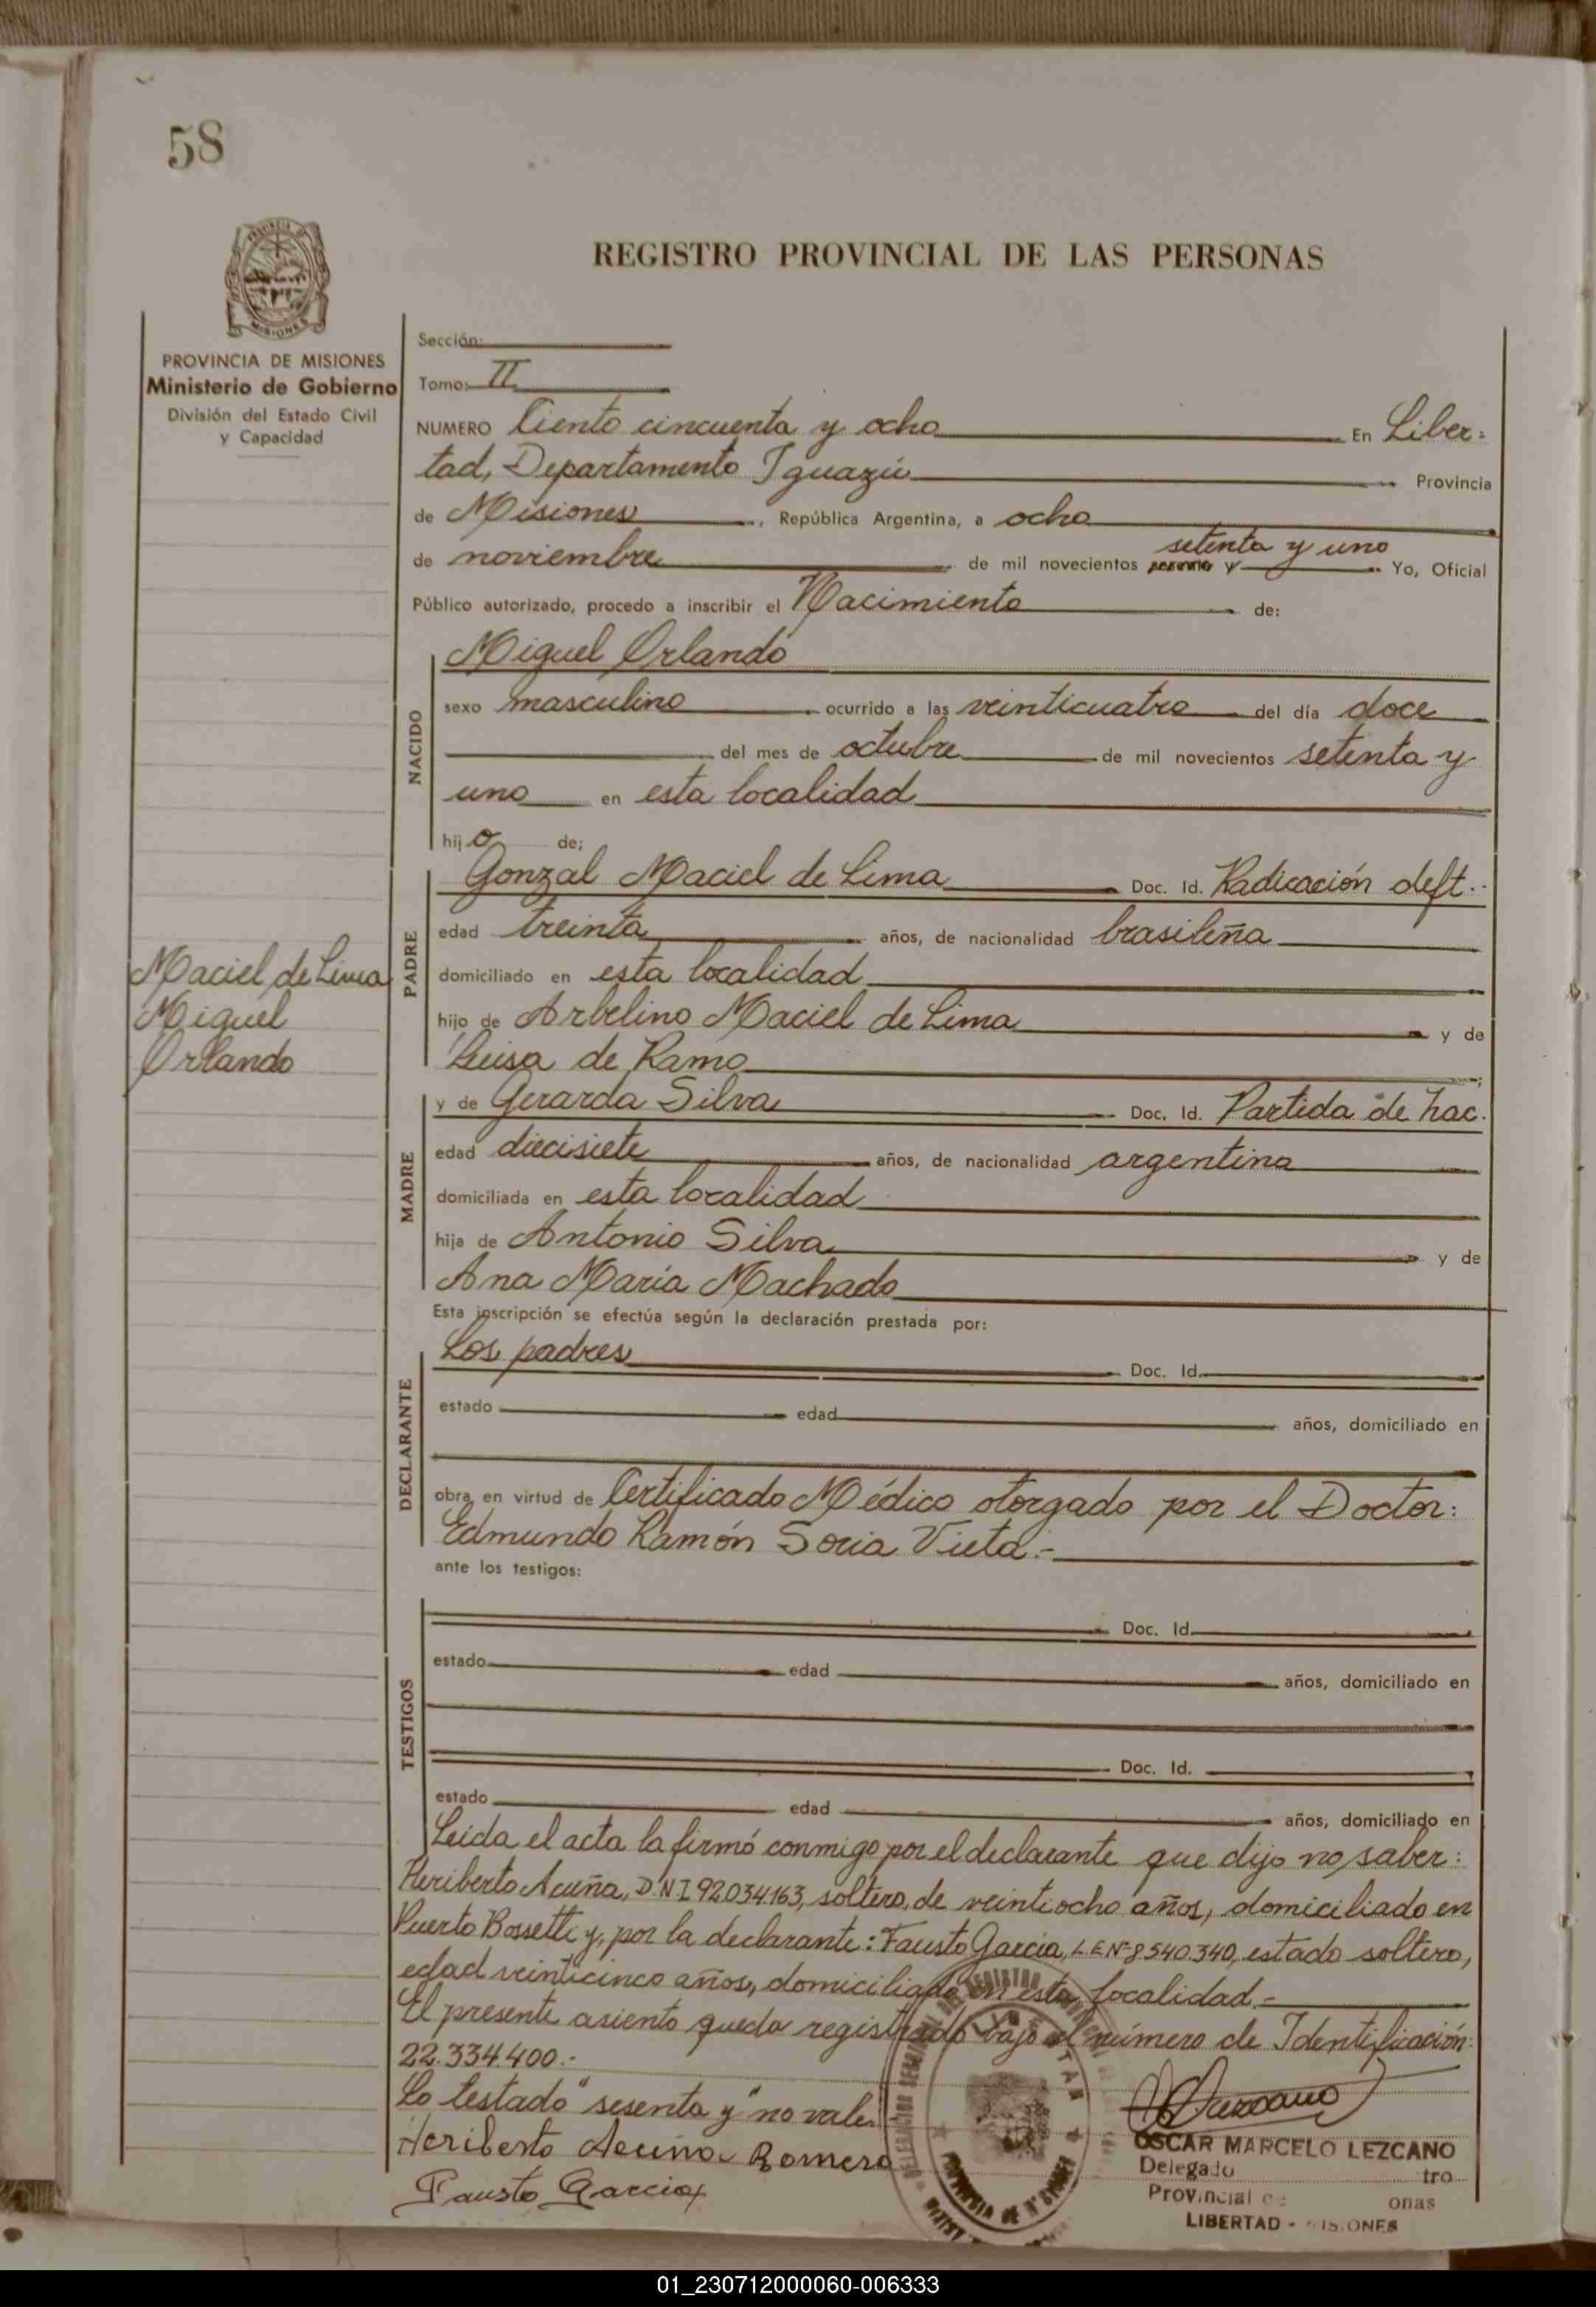 58
PROVINCIA DE MISIONES
Ministerio de Gobierno
División del Estado Civil
y Capacidad
REGISTRO PROVINCIAL DE LAS PERSONAS
Sección:
Tomo: II
NUMERO Ciento cincuenta y ocho En Liber=
tad, Departamento Iguazú Provincia
de Misiones, República Argentina, a ocho
setenta y uno
de noviembre de mil novecientos sesenta y Yo, Oficial
Público autorizado, procedo a inscribir el Nacimiento de:
NACIDO
Miguel Orlando
sexo masculino ocurrido a las veinticuatro del día doce
del mes de octubre de mil novecientos setenta y
uno en esta localidad
hijo de;
PADRE
Gonzal Maciel de Lima Doc. Id. Radicación deft.-
edad treinta años, de nacionalidad brasileña
domiciliado en esta localidad
hijo de Arbelino Maciel de Lima y de
Luisa de Ramo
Maciel de Lima
Miguel
Orlando
MADRE
y de Gerarda Silva Doc. Id. Partida de nac.
edad diecisiete años, de nacionalidad argentina
domiciliada en esta localidad
hija de Antonio Silva y de
Ana María Machado
Esta inscripción se efectúa según la declaración prestada por:
DECLARANTE
Los padres Doc. Id.
estado edad años, domiciliado en
obra en virtud de Certificado Médico otorgado por el Doctor:
Edmundo Ramón Soria Vieta.-
ante los testigos:
TESTIGOS
Doc. Id.
estado edad años, domiciliado en
Doc. Id.
estado edad años, domiciliado en
Leida el acta la firmó conmigo por el declarante que dijo no saber:
Heriberto Acuña, D.N.I 92.034.163, soltero, de veintiocho años, domiciliado en
Puerto Bossetti y, por la declarante: Fausto Garcia, L.E.Nº 8.540.340, estado soltero,
edad veinticinco años, domiciliado en esta localidad.-
El presente asiento queda registrado bajo el número de Identificación:
22.334.400.-
Lo testado "sesenta y" no vale.-
Heriberto Acuña Romero
Fausto Garcia
OSCAR MARCELO LEZCANO
Delegado tro
Provincial de onas
LIBERTAD - MISIONES
01_230712000060-006333